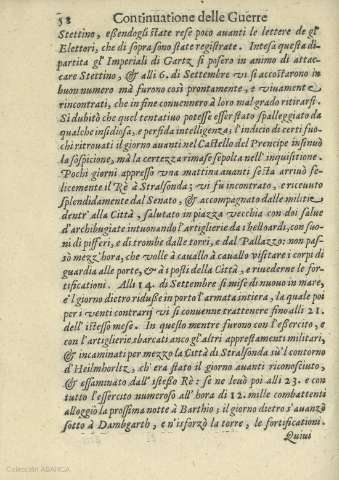 58 Continuatione delle Guerre
Stettino, essendogli state rese poco auanti le lettere de gl'
Elettori, che di sopra sono state registrate. Intesa questa di-
partita gl'Imperiali di Gartz si posero in animo di attac-
care Stettino, & alli 6. di Settembre vi si accostarono in
buon numero ma furono così prontamente, e viuamente
rincontrati, che in fine conuennero à loro mal grado ritirarsi.
Si dubitò che quel tentatiuo potesse esser stato spalleggiato da
qualche insidiosa, e perfida intelligenza; l'indicio di certi fuo-
chi ritrouati il giorno auanti nel Castello del Prencipe insinuò
la sospicione, mà la certezza rimase sepolta nell'inquisitione.
Pochi giorni appresso vna mattina auanti sesta arriuò fe-
licemente il Rè à Stralsonda; vi fù incontrato, e riceuuto
splendidamente dal Senato, & accompagnato dalle militie
dentr'alla Città, salutato in piazza vecchia con doi salue
d'archibugiate intuonando l'artiglierie da i belloardi, con suo-
ni di pifferi, e di trombe dalle torri, e dal Pallazzo: non pas-
sò mezz'hora, che volle à cauallo à cauallo visitare i corpi di
guardia alle porte, & à i posti della Città, e riuederne le for-
tificationi. Alli 14. di Settembre si mise di nuouo in mare,
e'l giorno dietro ridusse in porto l'armata intiera, la quale poi
per i venti contrarij vi si conuenne trattenere fino alli 21.
dell'istesso mese. In questo mentre furono con l'essercito, e
con l'artiglierie sbarcati anco gl'altri apprestamenti militari,
& incaminati per mezzo la Città di Stralsonda sù'l contorno
d'Heilmhorltz, ch'era stato il giorno auanti riconosciuto,
& essaminato dall'istesso Rè: se ne leuò poi alli 23. e con
tutto l'essercito numeroso all'hora di 12. mille combattenti
alloggiò la prossima notte à Barthio; il giorno dietro s'auanzò
sotto à Dambgarth, e n'isforzò la torre, le fortificationi.
Quiui
Colección ABANCA